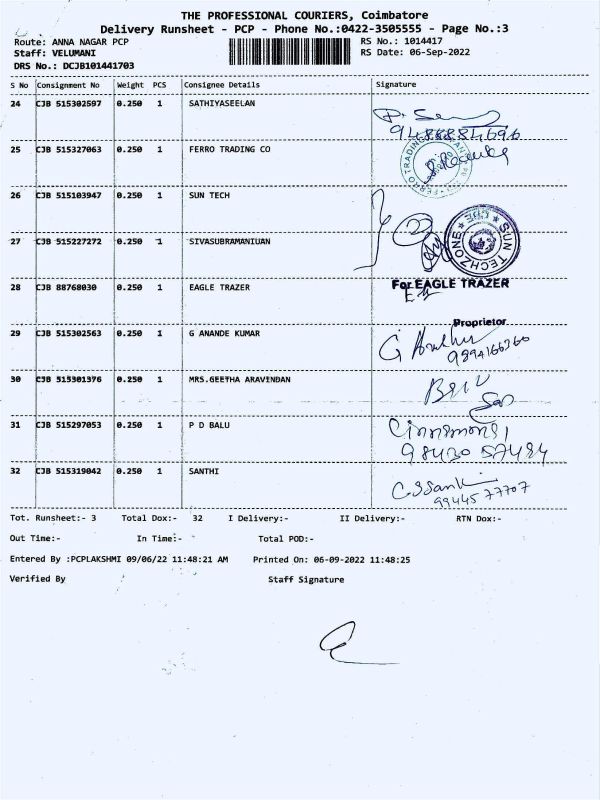 THE PROFESSIONAL COURIERS, Coimbatore
Delivery Runsheet - PCP - Phone No.:0422-3505555 - Page No.:3
Route: ANNA NAGAR PCP
Staff: VELUMANI
DRS No.: DCJB101441703
RS No.: 1014417
RS Date: 06-Sep-2022
S No Consignment No Weight PCS Consignee Details Signature
24 CJB 515302597 0.250 1 SATHIYASEELAN
9488884696
25 CJB 515327063 0.250 1 FERRO TRADING CO
FERRO TRADING
26 CJB 515103947 0.250 1 SUN TECH
SUN TECHZONE
CBE
27 CJB 515227272 0.250 1 SIVASUBRAMANIUAN
28 CJB 88768030 0.250 1 EAGLE TRAZER
For EAGLE TRAZER
Proprietor
29 CJB 515302563 0.250 1 G ANANDE KUMAR
9894166360
30 CJB 515301376 0.250 1 MRS.GEETHA ARAVINDAN
31 CJB 515297053 0.250 1 P D BALU
98430 57484
32 CJB 515319042 0.250 1 SANTHI
99445 77707
Tot. Runsheet:- 3 Total Dox:- 32 I Delivery:- II Delivery:- RTN Dox:-
Out Time:- In Time:- Total POD:-
Entered By :PCPLAKSHMI 09/06/22 11:48:21 AM Printed On: 06-09-2022 11:48:25
Verified By Staff Signature